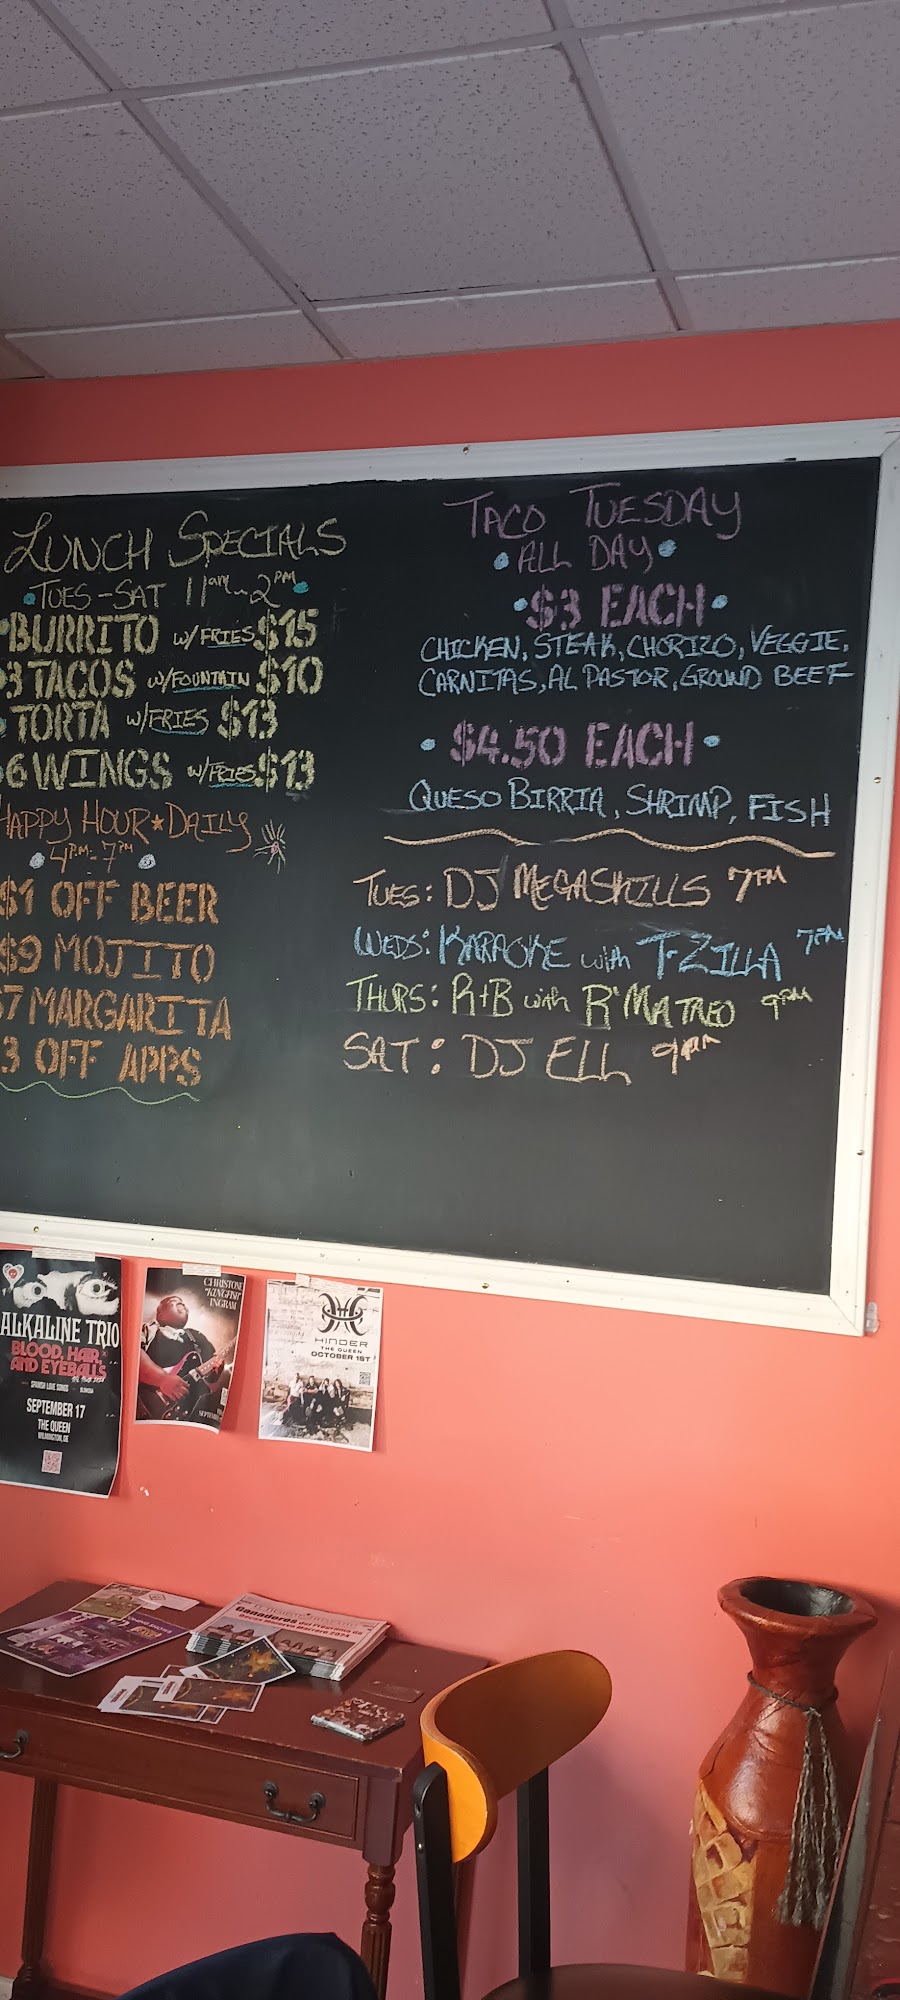 LUNCH SPECIALS
TUES-SAT 11am-2PM
BURRITO W/FRIES $15
3 TACOS W/FOUNTAIN $10
TORTA W/FRIES $13
6 WINGS W/FRIES $13
HAPPY HOUR★DAILY
4PM-7PM
$1 OFF BEER
$9 MOJITO
$7 MARGARITA
3 OFF APPS
TACO TUESDAY
ALL DAY
$3 EACH
CHICKEN, STEAK, CHORIZO, VEGGIE,
CARNITAS, AL PASTOR, GROUND BEEF
$4.50 EACH
QUESO BIRRIA, SHRIMP, FISH
TUES: DJ MEGASKILLS 7PM
WEDS: KARAOKE with T-ZILLA 7PM
THURS: R+B with R'MATNEO 9PM
SAT: DJ ELL 9PM
ALKALINE TRIO
BLOOD, HAIR,
AND EYEBALLS
SPANISH LOVE SONGS
SEPTEMBER 17
THE QUEEN
WILMINGTON, DE
CHRISTONE
"KINGFISH"
INGRAM
HINDER
THE QUEEN
OCTOBER 1ST
Ganadores del Programa de